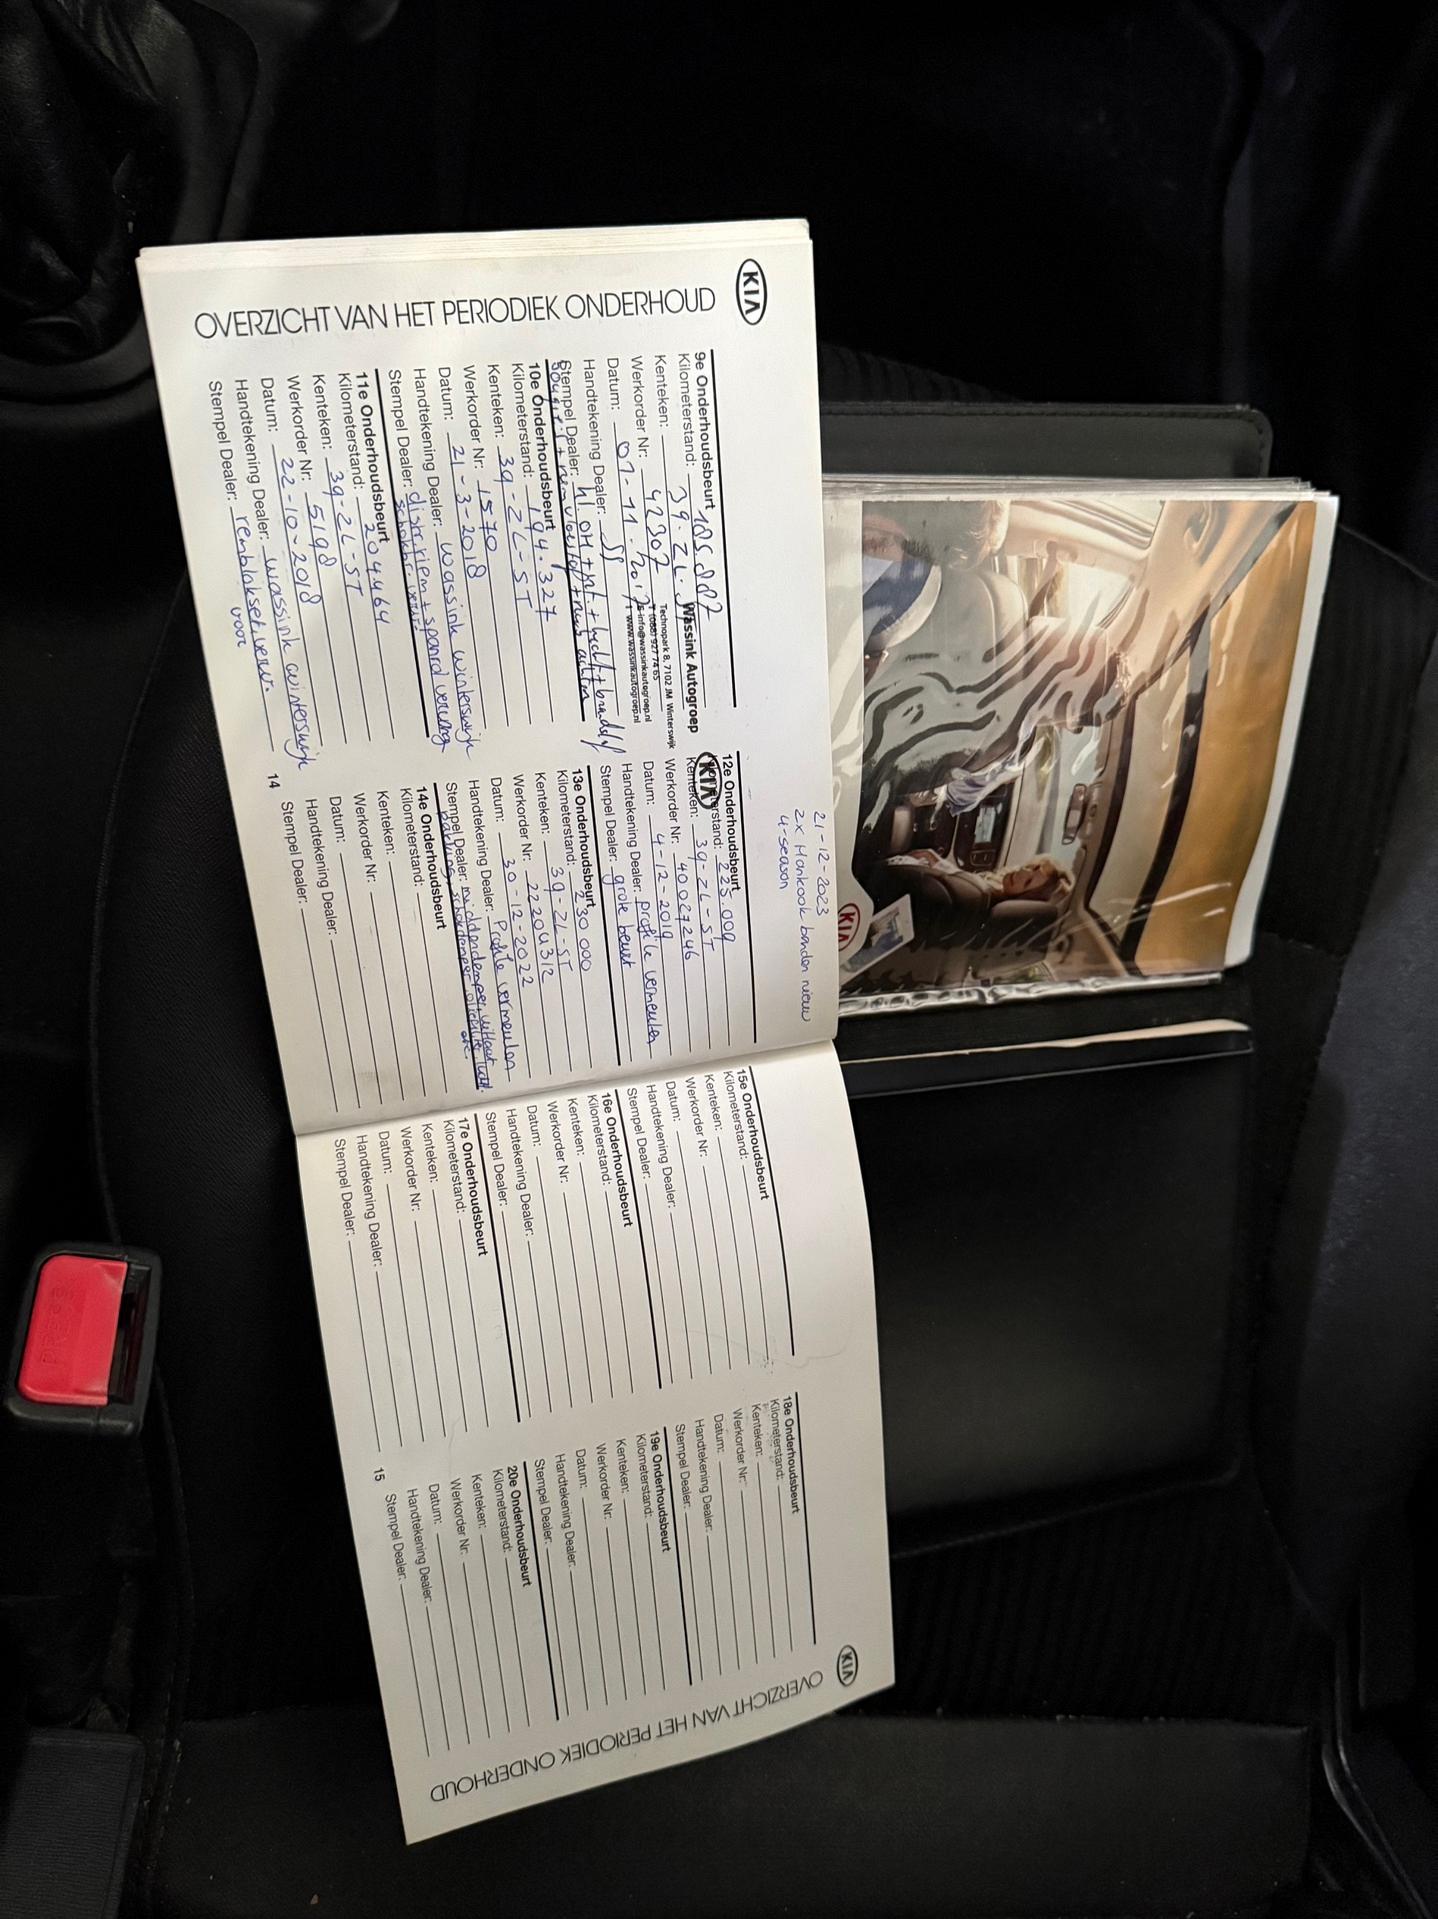 KIA
OVERZICHT VAN HET PERIODIEK ONDERHOUD
9e Onderhoudsbeurt
Kilometerstand:
Kenteken: 39-ZL-
Werkorder Nr: 42307
Datum: 01-11-2017
Handtekening Dealer:
Stempel Dealer:
Wassink Autogroep
Technopark 8, 7102 JM Winterswijk
T (088) 927 74 65
info@wassinkautogroep.nl
www.wassinkautogroep.nl
KIA
10e Onderhoudsbeurt
Kilometerstand: 194.327
Kenteken: 39-ZL-ST
Werkorder Nr: 1570
Datum: 21-3-2018
Handtekening Dealer: wassink winterswijk
Stempel Dealer:
11e Onderhoudsbeurt
Kilometerstand: 204464
Kenteken: 39-ZL-ST
Werkorder Nr: 5198
Datum: 22-10-2018
Handtekening Dealer: wassink winterswijk
Stempel Dealer: remblokset verv.
voor
14
21-12-2023
2x Hankook banden nieuw
4-season
12e Onderhoudsbeurt
Kilometerstand: 225.009
Kenteken: 39-ZL-ST
Werkorder Nr: 40027246
Datum: 4-12-2019
Handtekening Dealer: profile vermeulen
Stempel Dealer: grote beurt
13e Onderhoudsbeurt
Kilometerstand: 230000
Kenteken: 39-ZL-ST
Werkorder Nr: 22209312
Datum: 30-12-2022
Handtekening Dealer: Profile vermeulen
Stempel Dealer: middendemper, uitlaat
14e Onderhoudsbeurt
Kilometerstand:
Kenteken:
Werkorder Nr:
Datum:
Handtekening Dealer:
Stempel Dealer:
15e Onderhoudsbeurt
Kilometerstand:
Kenteken:
Werkorder Nr:
Datum:
Handtekening Dealer:
Stempel Dealer:
16e Onderhoudsbeurt
Kilometerstand:
Kenteken:
Werkorder Nr:
Datum:
Handtekening Dealer:
Stempel Dealer:
17e Onderhoudsbeurt
Kilometerstand:
Kenteken:
Werkorder Nr:
Datum:
Handtekening Dealer:
Stempel Dealer:
15
18e Onderhoudsbeurt
Kilometerstand:
Kenteken:
Werkorder Nr:
Datum:
Handtekening Dealer:
Stempel Dealer:
19e Onderhoudsbeurt
Kilometerstand:
Kenteken:
Werkorder Nr:
Datum:
Handtekening Dealer:
Stempel Dealer:
20e Onderhoudsbeurt
Kilometerstand:
Kenteken:
Werkorder Nr:
Datum:
Handtekening Dealer:
Stempel Dealer:
KIA
OVERZICHT VAN HET PERIODIEK ONDERHOUD
KIA
PRESS